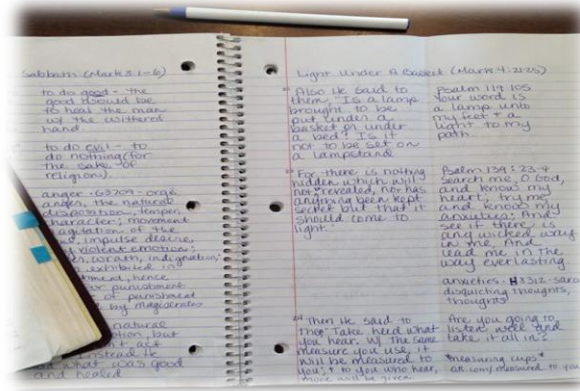 Sabbath (Mark 3:1-6)
to do good - the
good would be
to heal the man
w/ the withered
hand
to do evil - to
do nothing (for
the sake of
religion)
anger - G3709 - orge
anger, the natural
disposition, temper,
character; movement
agitation of the
impulse, desire,
violent emotion;
wrath, indignation;
exhibited in
hence
punishment
of punishment
by magistrates
natural
but
act
Instead He
what was good
and healed
Light Under A Basket (Mark 4:21-25)
21 Also He said to
them, "Is a lamp
brought to be
put under a
basket or under
a bed? Is it
not to be set on
a lampstand
22 For there is nothing
hidden which will
not revealed, nor has
anything been kept
secret but that it
should come to
light."
24 Then He said to
"Take heed what
you hear. W/ the same
measure you use, it
will be measured to
you; & to you who hear,
more will be given
Psalm 119:105
Your word is
a lamp unto
my feet & a
light to my
path.
Psalm 139:23-4
Search me, O God,
and know my
heart; try me,
and know my
anxieties; And
see if there is
any wicked way
in me, And
lead me in the
way everlasting
anxieties - H8312 -
disquieting thoughts,
thoughts
Are you going to
listen well and
take it all in?
*measuring cups*
measured to you